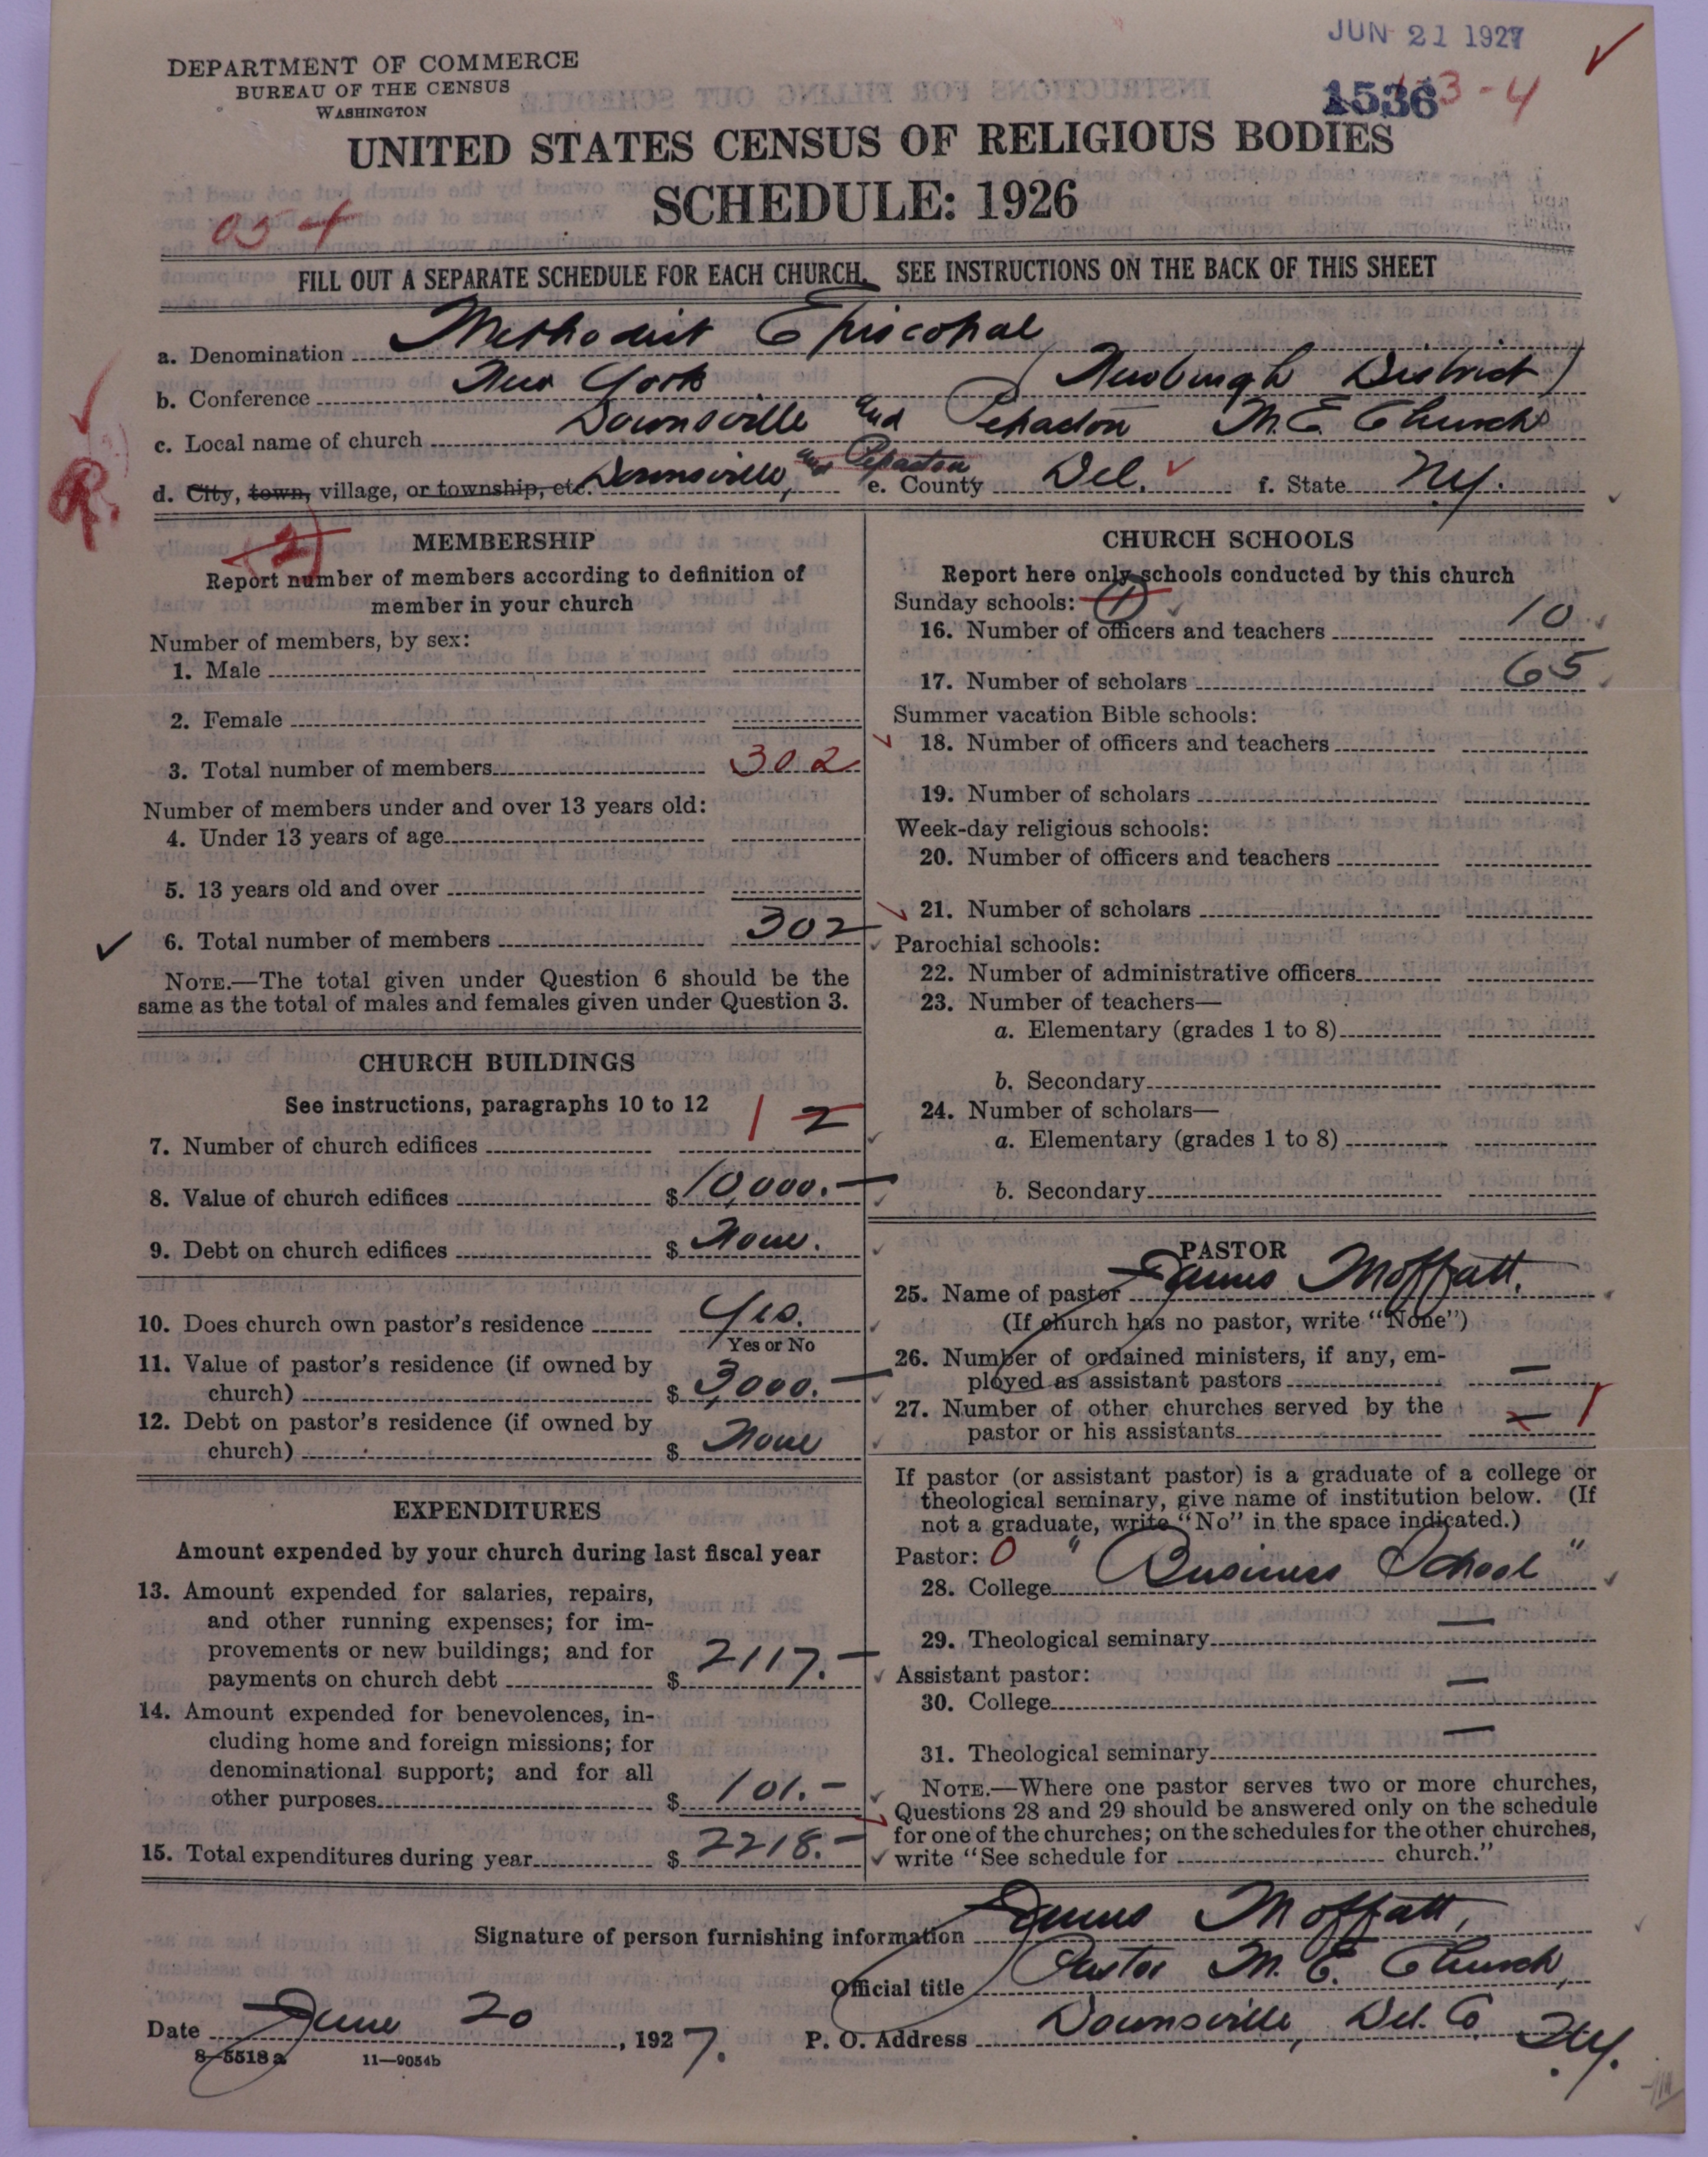 JUN 21 1927
DEPARTMENT OF COMMERCE
BUREAU OF THE CENSUS
WASHINGTON
1536 3-4
UNITED STATES CENSUS OF RELIGIOUS BODIES
SCHEDULE: 1926
03-4
FILL OUT A SEPARATE SCHEDULE FOR EACH CHURCH. SEE INSTRUCTIONS ON THE BACK OF THIS SHEET
a. Denomination Methodist Episcopal
b. Conference New York (Newburgh District)
c. Local name of church Downsville and Pepacton M.E. Churchs
d. City, town, village, or township, etc. Downsville, and Pepacton e. County Del. f. State N.Y.
R.
MEMBERSHIP
2
Report number of members according to definition of
member in your church
Number of members, by sex:
1. Male
2. Female
3. Total number of members 302
Number of members under and over 13 years old:
4. Under 13 years of age
5. 13 years old and over
6. Total number of members 302
NOTE.—The total given under Question 6 should be the
same as the total of males and females given under Question 3.
CHURCH BUILDINGS
See instructions, paragraphs 10 to 12
7. Number of church edifices 1 2
8. Value of church edifices $ 10,000.—
9. Debt on church edifices $ None.
10. Does church own pastor's residence Yes.
Yes or No
11. Value of pastor's residence (if owned by
church) $ 3000.—
12. Debt on pastor's residence (if owned by
church) $ None
EXPENDITURES
Amount expended by your church during last fiscal year
13. Amount expended for salaries, repairs,
and other running expenses; for im-
provements or new buildings; and for
payments on church debt $ 2117.—
14. Amount expended for benevolences, in-
cluding home and foreign missions; for
denominational support; and for all
other purposes $ 101.—
15. Total expenditures during year $ 2218.—
CHURCH SCHOOLS
Report here only schools conducted by this church
Sunday schools: 1
16. Number of officers and teachers 10
17. Number of scholars 65
Summer vacation Bible schools:
18. Number of officers and teachers
19. Number of scholars
Week-day religious schools:
20. Number of officers and teachers
21. Number of scholars
Parochial schools:
22. Number of administrative officers
23. Number of teachers—
a. Elementary (grades 1 to 8)
b. Secondary
24. Number of scholars—
a. Elementary (grades 1 to 8)
b. Secondary
PASTOR
25. Name of pastor James Moffatt.
(If church has no pastor, write "None")
26. Number of ordained ministers, if any, em-
ployed as assistant pastors —
27. Number of other churches served by the
pastor or his assistants — 1
If pastor (or assistant pastor) is a graduate of a college or
theological seminary, give name of institution below. (If
not a graduate, write "No" in the space indicated.)
Pastor: 0
28. College "Business School"
29. Theological seminary —
Assistant pastor:
30. College —
31. Theological seminary —
NOTE.—Where one pastor serves two or more churches,
Questions 28 and 29 should be answered only on the schedule
for one of the churches; on the schedules for the other churches,
write "See schedule for church."
Signature of person furnishing information James Moffatt,
Official title Pastor M. E. Church,
Date June 20, 1927. P. O. Address Downsville, Del. Co. N.Y.
8-5518a 11—9054b